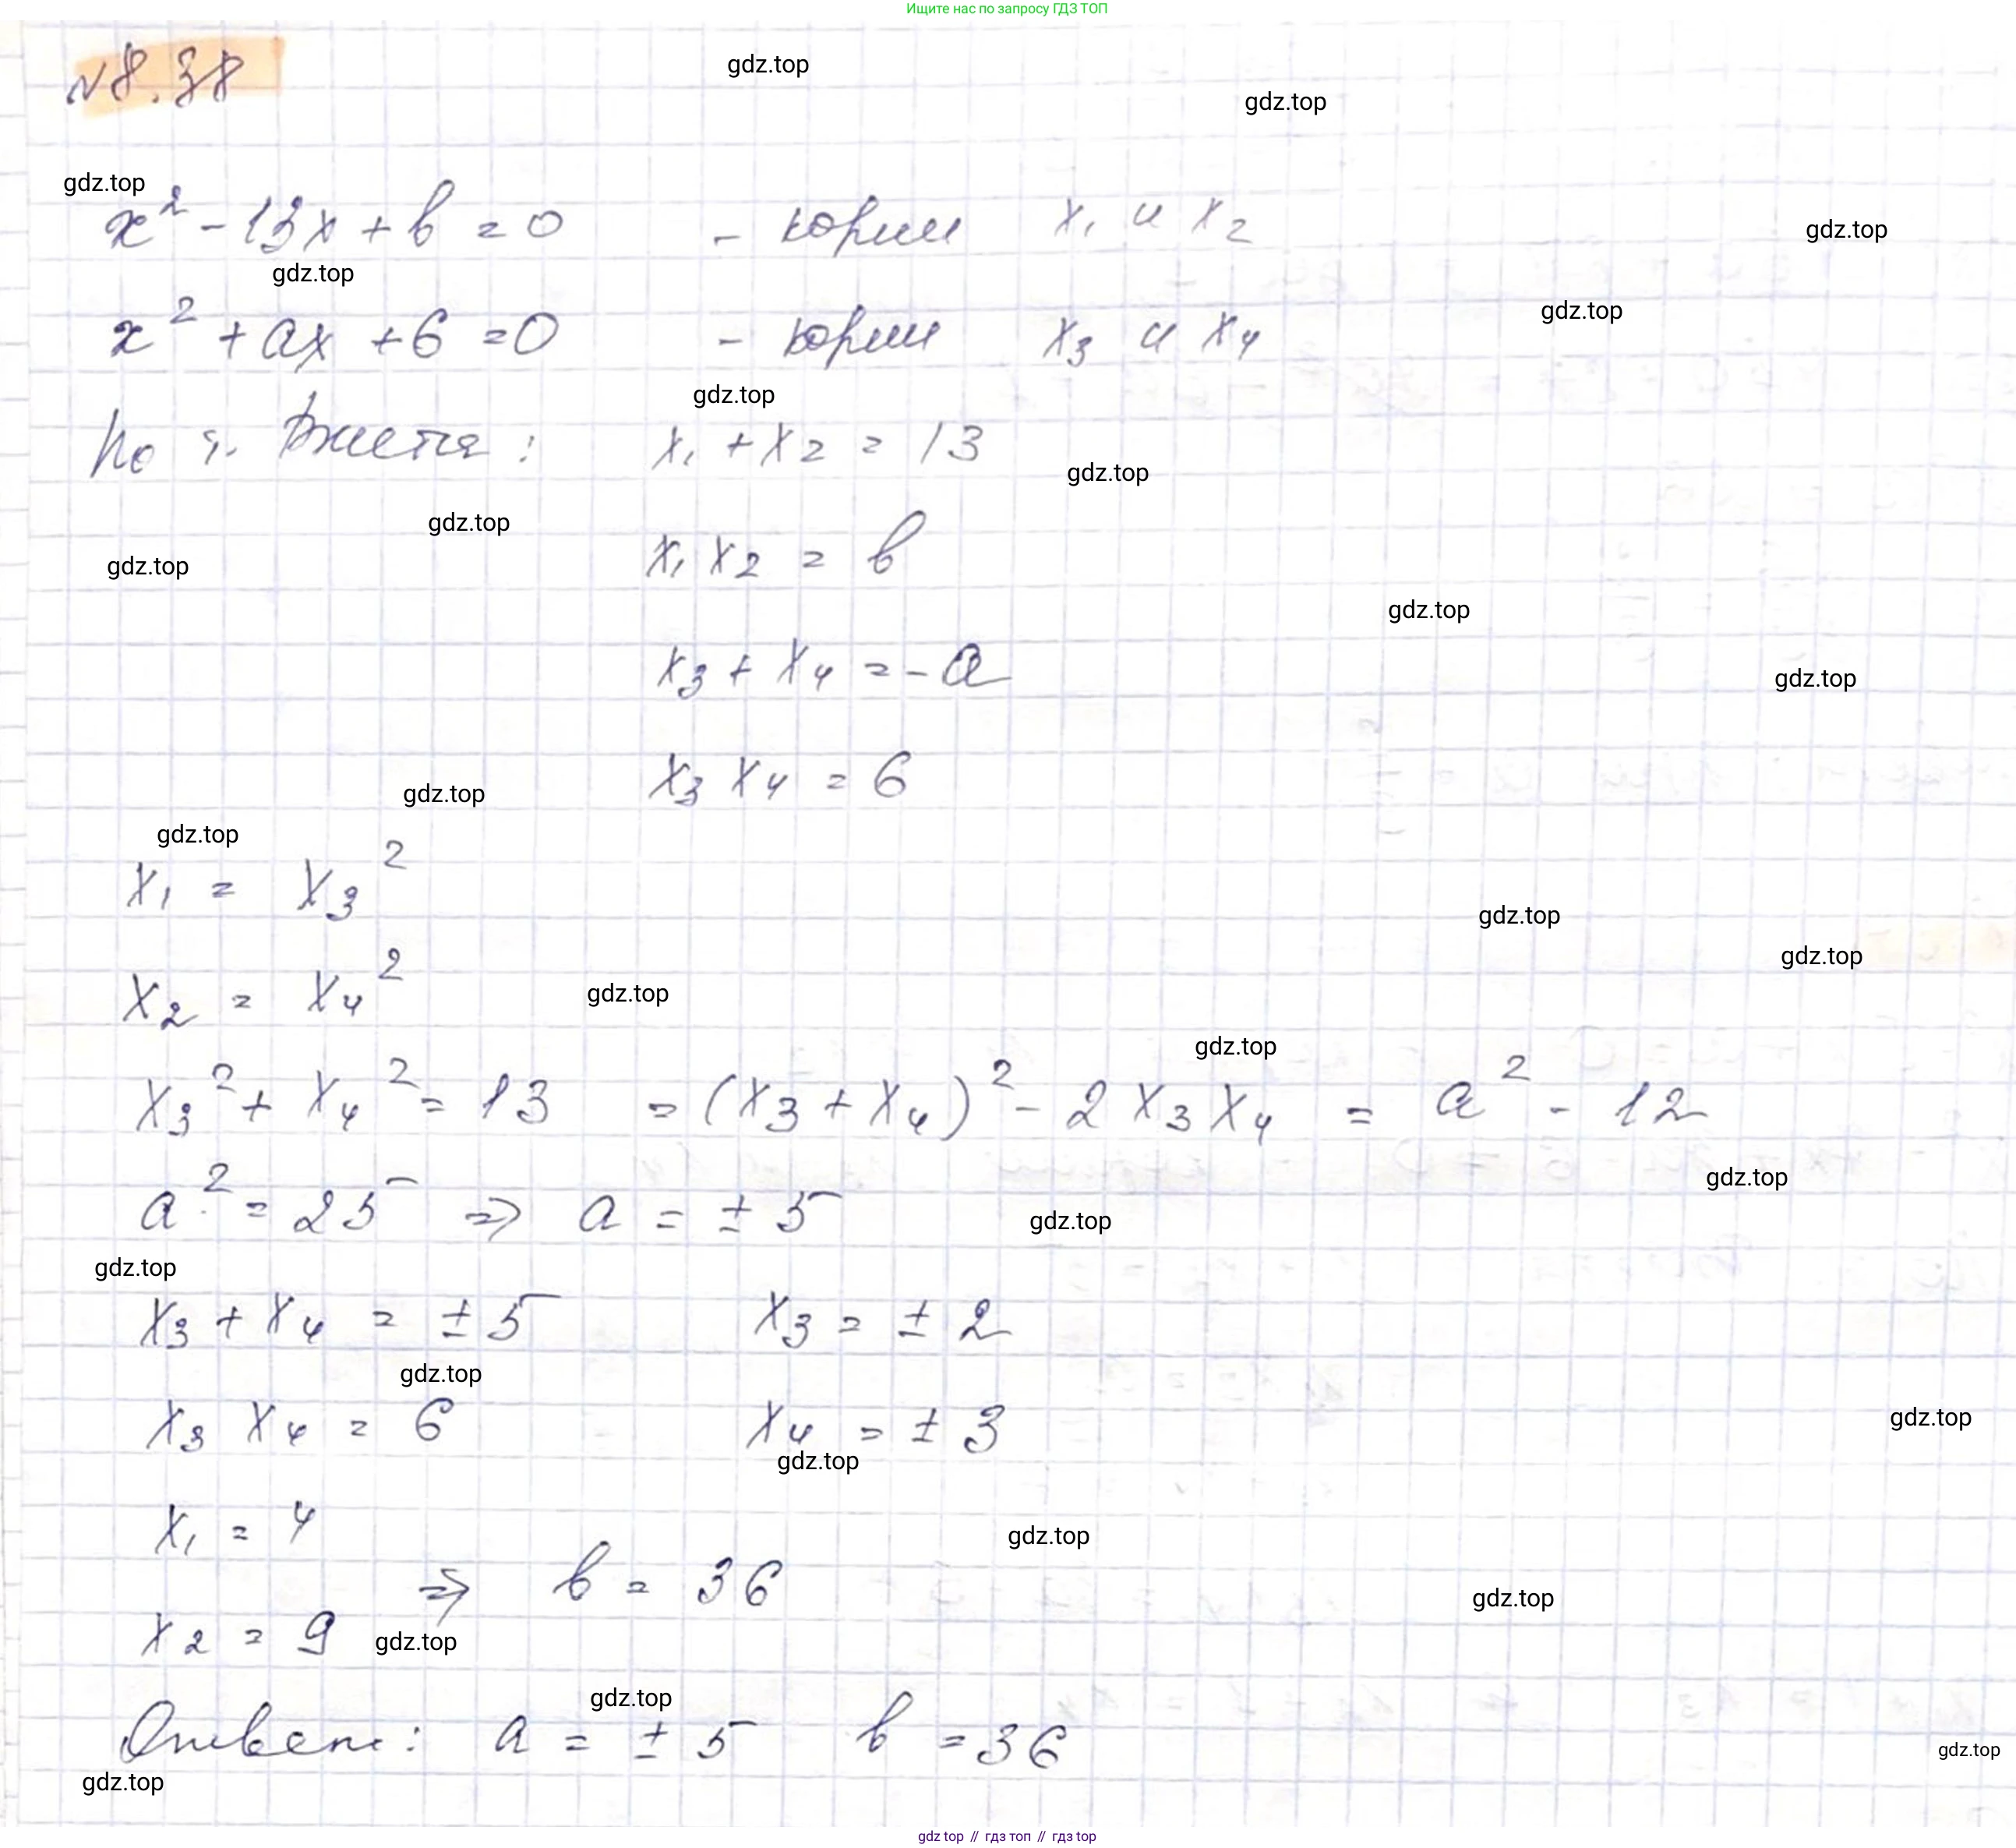 Ищите нас по запросу ГДЗ ТОП
№8.38
gdz.top
gdz.top
gdz.top
x² - 13x + b = 0 - корни x₁ и x₂
gdz.top
gdz.top
x² + ax + 6 = 0 - корни x₃ и x₄
gdz.top
gdz.top
По т. Виета: x₁ + x₂ = 13
gdz.top
gdz.top
x₁ x₂ = b
gdz.top
gdz.top
x₃ + x₄ = -a
gdz.top
x₃ x₄ = 6
gdz.top
gdz.top
x₁ = x₃²
gdz.top
gdz.top
x₂ = x₄²
gdz.top
gdz.top
x₃² + x₄² = 13 = (x₃ + x₄)² - 2 x₃ x₄ = a² - 12
gdz.top
a² = 25 ⇒ a = ± 5
gdz.top
gdz.top
x₃ + x₄ = ± 5 x₃ = ± 2
gdz.top
x₃ x₄ = 6 x₄ = ± 3
gdz.top
gdz.top
x₁ = 4
gdz.top
⇒ b = 36
gdz.top
x₂ = 9
gdz.top
gdz.top
Ответ: a = ± 5 b = 36
gdz.top
gdz.top
gdz top // гдз топ // гдз top